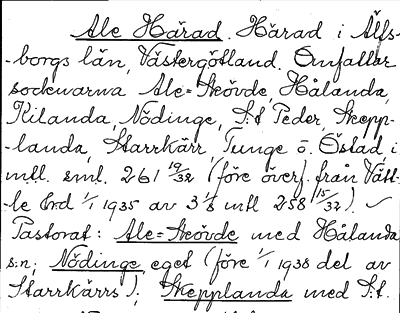 Ale Härad. Härad i Älfs-
-borgs län, Västergötland. Omfattar
socknarna Ale-Skövde, Hålanda,
Kilanda, Nödinge, S:t Peder, Skepp-
-landa, Starrkärr, Tunge o. Östad i
mtl. sml. 261 19/32 (före överf. från Vätt-
le hrd 1/1 1935 av 3 1/8 mtl 258 15/32).
Pastorat: Ale-Skövde med Hålanda
s:n; Nödinge eget (före 1/1 1938 del av
Starrkärrs); Skepplanda med S:t.